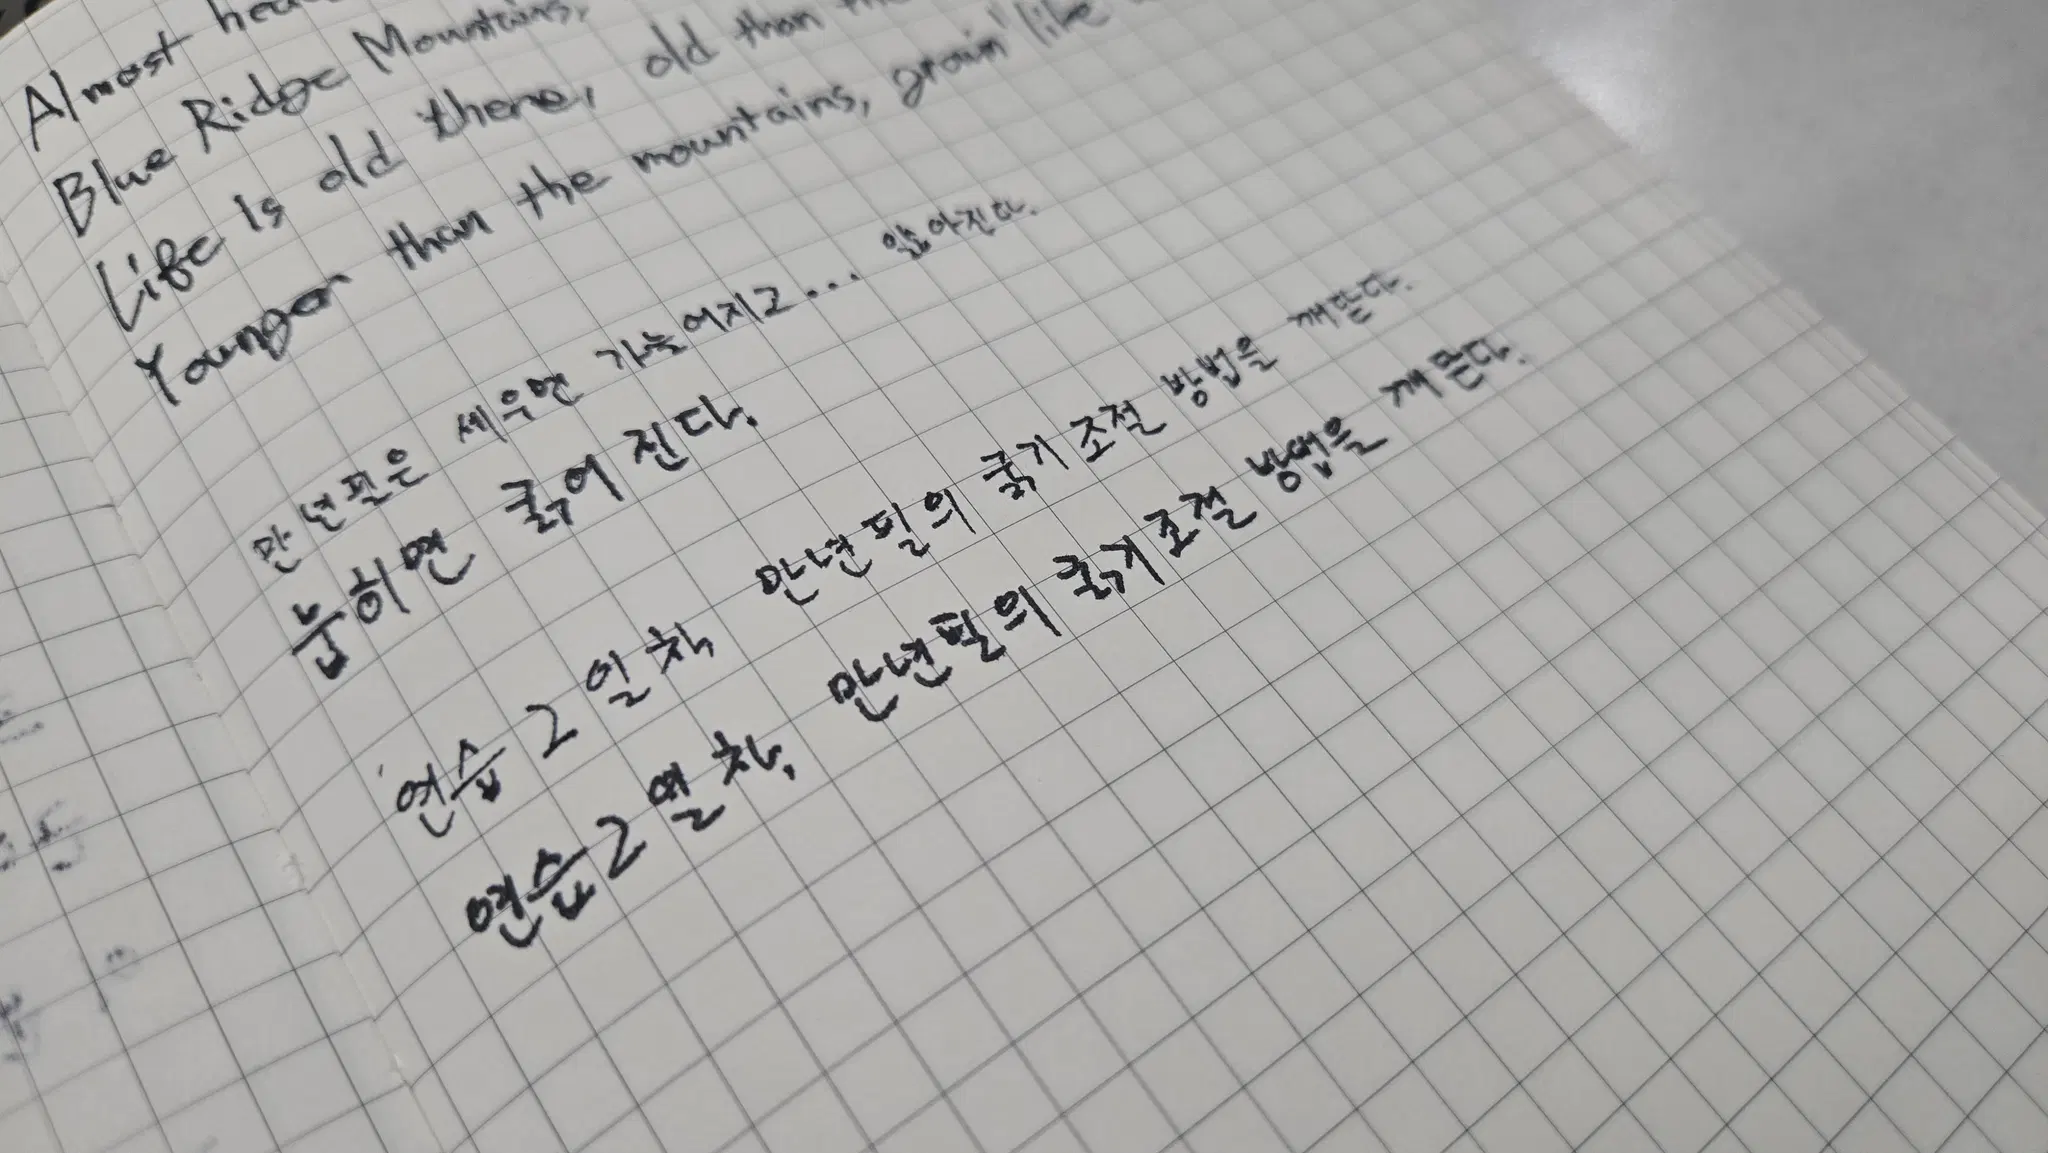 Almost
Blue Ridge Mountains,
Life is old there, old than the
Younger than the mountains, growin' like
만년필은 세우면 가늘어지고... 얇아진다.
눕히면 굵어진다.
연습 2일차 만년필의 굵기 조절 방법을 깨닫다.
연습 2일차, 만년필의 굵기 조절 방법을 깨닫다.